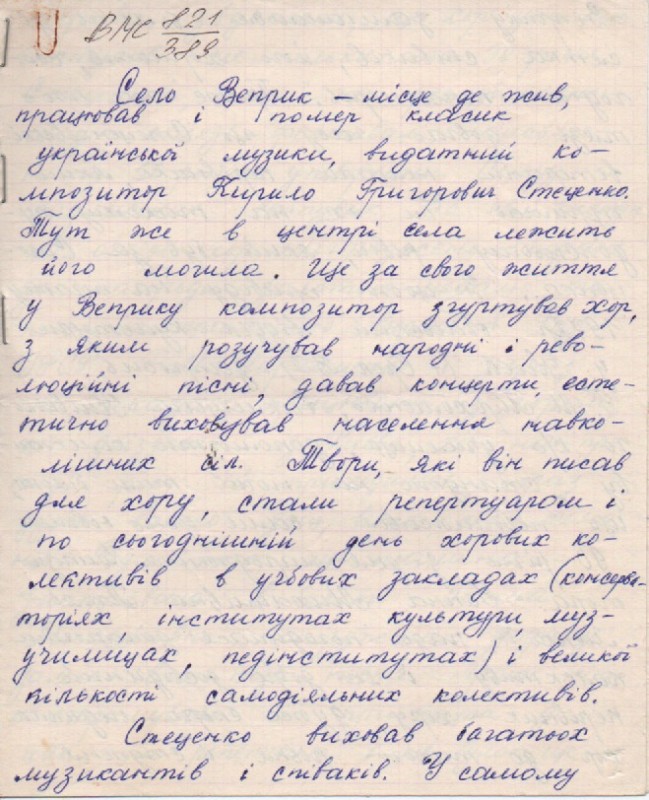 ВМС 821/389
Село Веприк – місце де жив,
працював і помер класик
української музики, видатний ко-
мпозитор Кирило Григорович Стеценко.
Тут же в центрі села лежить
його могила. Ще за свого життя
у Веприку композитор згуртував хор,
з яким розучував народні і рево-
люційні пісні, давав концерти, есте-
тично виховував населення навко-
лішних сіл. Твори, які він писав
для хору, стали репертуаром і
по сьогоднішній день хорових ко-
лективів в учбових закладах (консерва-
торіях, інститутах культури, муз-
училищах, педінститутах) і великої
кількості самодіяльних колективів.
Стеценко виховав багатьох
музикантів і співаків. У самому